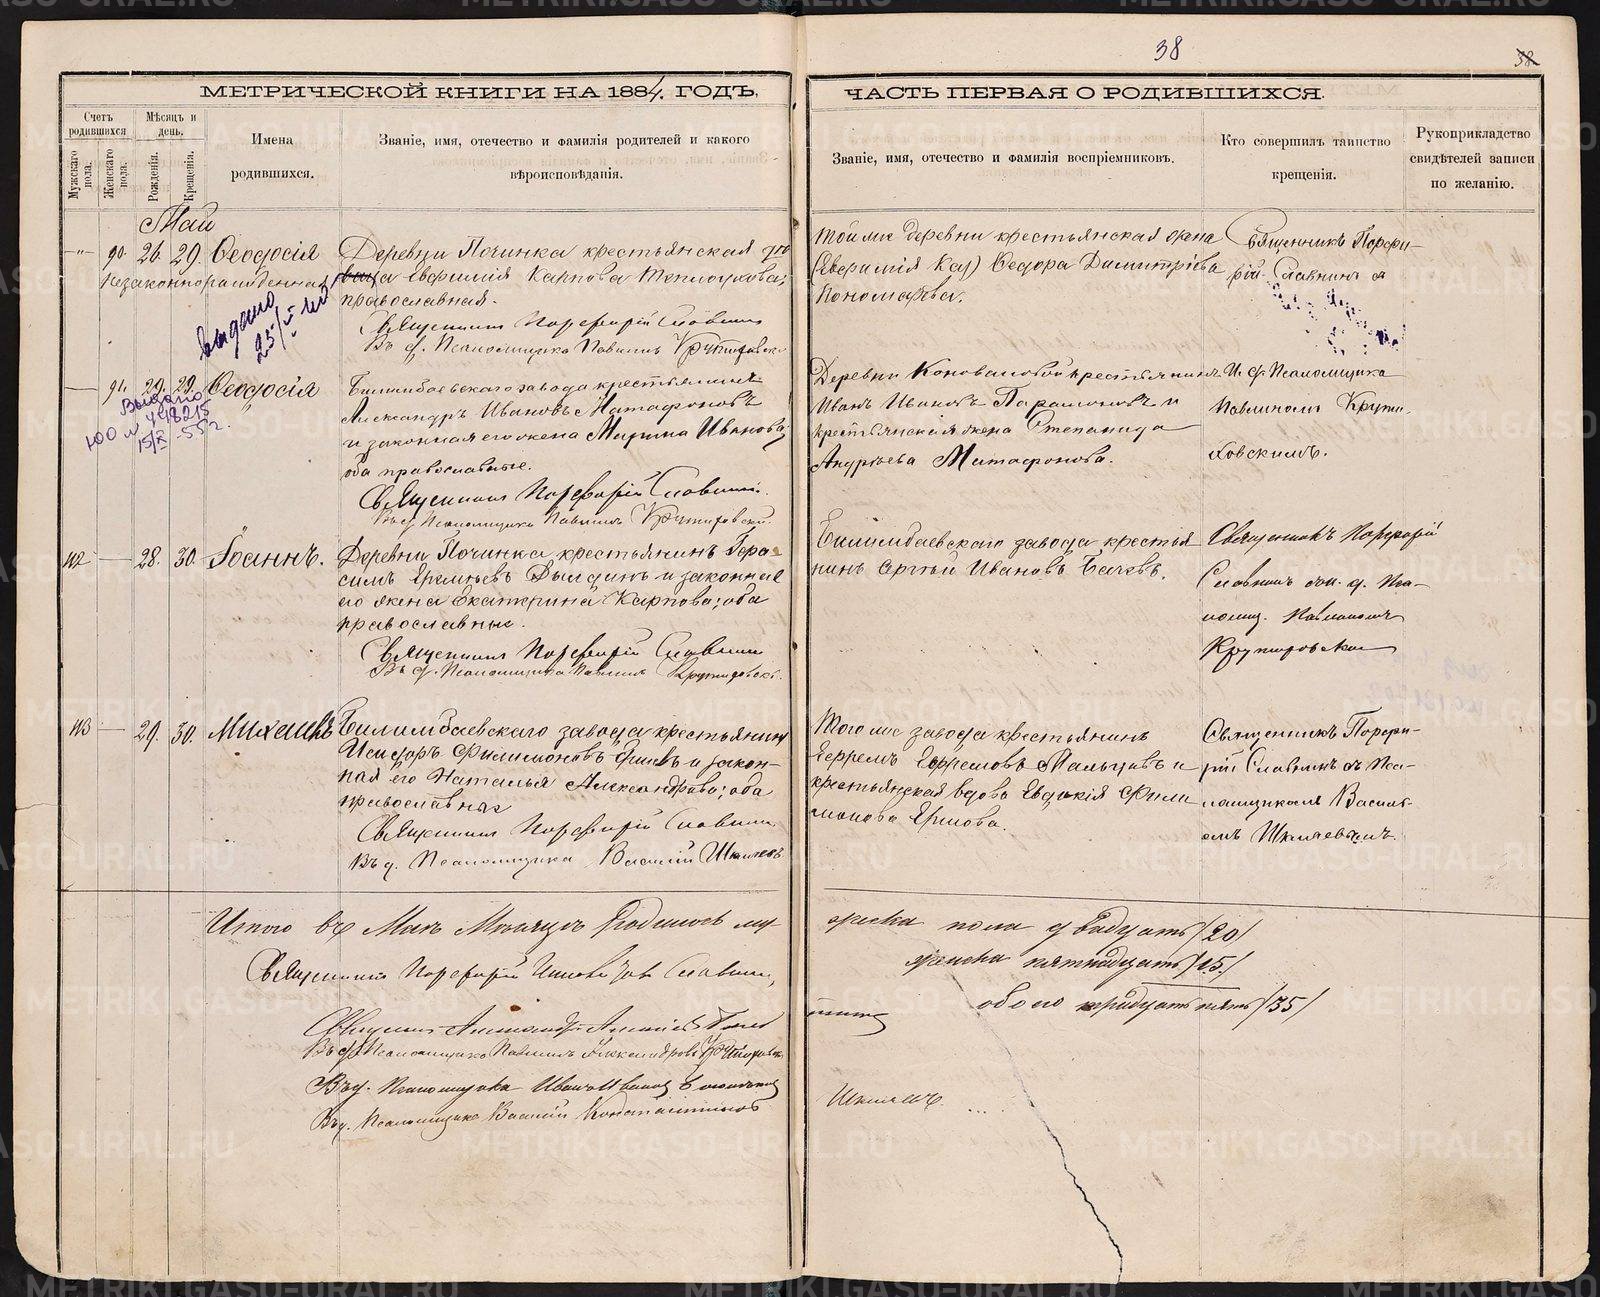 38
38
МЕТРИЧЕСКОЙ КНИГИ НА 1884. ГОДЪ,
ЧАСТЬ ПЕРВАЯ О РОДИВШИХСЯ.
Счетъ родившихся
Мужскаго пола.
Женскаго пола.
Мѣсяцъ и день.
Рожденія.
Крещенія.
Имена родившихся.
Званіе, имя, отечество и фамилія родителей и какого вѣроисповѣданія.
Званіе, имя, отечество и фамилія воспріемниковъ.
Кто совершилъ таинство крещенія.
Рукоприкладство свидѣтелей записи по желанію.
Май
90. 26. 29. Ѳеодосія
незаконнорожденная
Деревни Починка крестьянская
Евфимія Карпова Теплоухова,
православная.
Священникъ Порфирій Славнинъ
Въ д. Псаломщика Павлинъ Крутиховск
выдано
Той же деревни крестьянская жена
Ѳедора Димитріева
Пономарева.
Священникъ Порфи-
рій Славнинъ
91. 29. 29. Ѳеодосія
Выдано
15/X-55 г.
Билимбаевскаго завода крестьянинъ
Александръ Ивановъ Матафоновъ
и законная его жена Марина Иванова;
оба православные.
Священникъ Порфирій Славнинъ.
Въ д. Псаломщика Павлинъ Крутиховскій.
Деревни Коноваловой крестьянинъ
Иванъ Ивановъ Парамоновъ и
крестьянская жена Степанида
Андреева Матафонова.
И. д. Псаломщика
Павлиномъ Крути-
ховскимъ.
112 — 28. 30. Іоаннъ.
Деревни Починка крестьянинъ Гера-
симъ Еремѣевъ и законная
его жена Екатерина Карпова; оба
православные.
Священникъ Порфирій Славнинъ
Въ д. Псаломщика Павлинъ Крутиховск.
Билимбаевскаго завода крестья-
нинъ Сергѣй Ивановъ
Священникъ Порфирій
Славнинъ
Павлиномъ
113 — 29. 30. Михаилъ
Билимбаевскаго завода крестьянинъ
Исидоръ Филимоновъ и закон-
ная его Наталья Александрова; оба
православные
Священникъ Порфирій Славнинъ
Въ д. Псаломщика Василій Шкляевъ
Того же завода крестьянинъ
Ефремъ Ефремовъ Мальцевъ и
крестьянская вдова Евдокія Фили-
монова Ершова.
Священникъ Порфи-
рій Славнинъ съ Пса-
ломщикомъ Василі-
емъ Шкляевымъ.
Итого въ Маѣ Мѣсяцѣ Родилось му-
жеска пола двадцать /20/
женска пятнадцать /15/
обоего тридцать пять /35/
Священникъ Порфирій Славнинъ
Священникъ
Въ д. Псаломщика Павлинъ Александровъ Крутиховск
Въ д. Псаломщика Иванъ Ивановъ
Въ д. Псаломщика Василій Константиновъ
Шкляевъ